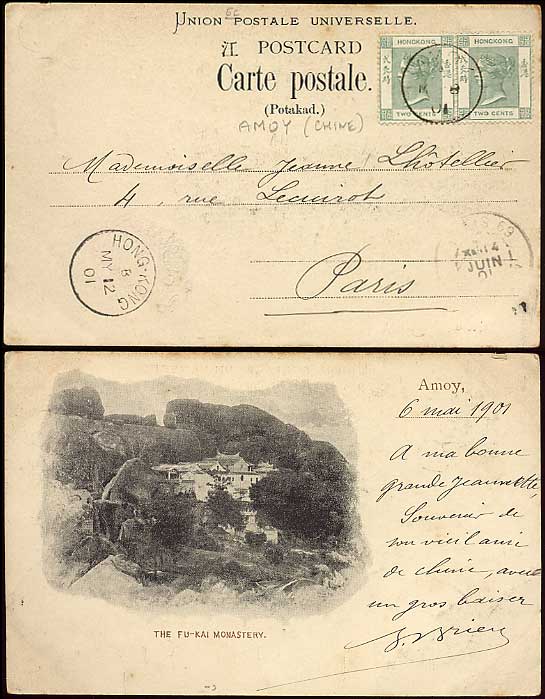 6c
UNION POSTALE UNIVERSELLE.
POSTCARD
Carte postale.
(Potakad.)
AMOY (CHINE)
HONGKONG HONGKONG
TWO CENTS TWO CENTS
Mademoiselle Jeanne Lhôtellier
4, rue
Paris
HONG-KONG
B
MY 12
01
69
JUIN
01
Amoy,
6 mai 1901
A ma bonne
grande Jeannette,
Souvenir de
son vieil ami
de chine, avec
un gros baiser
THE FU-KAI MONASTERY.